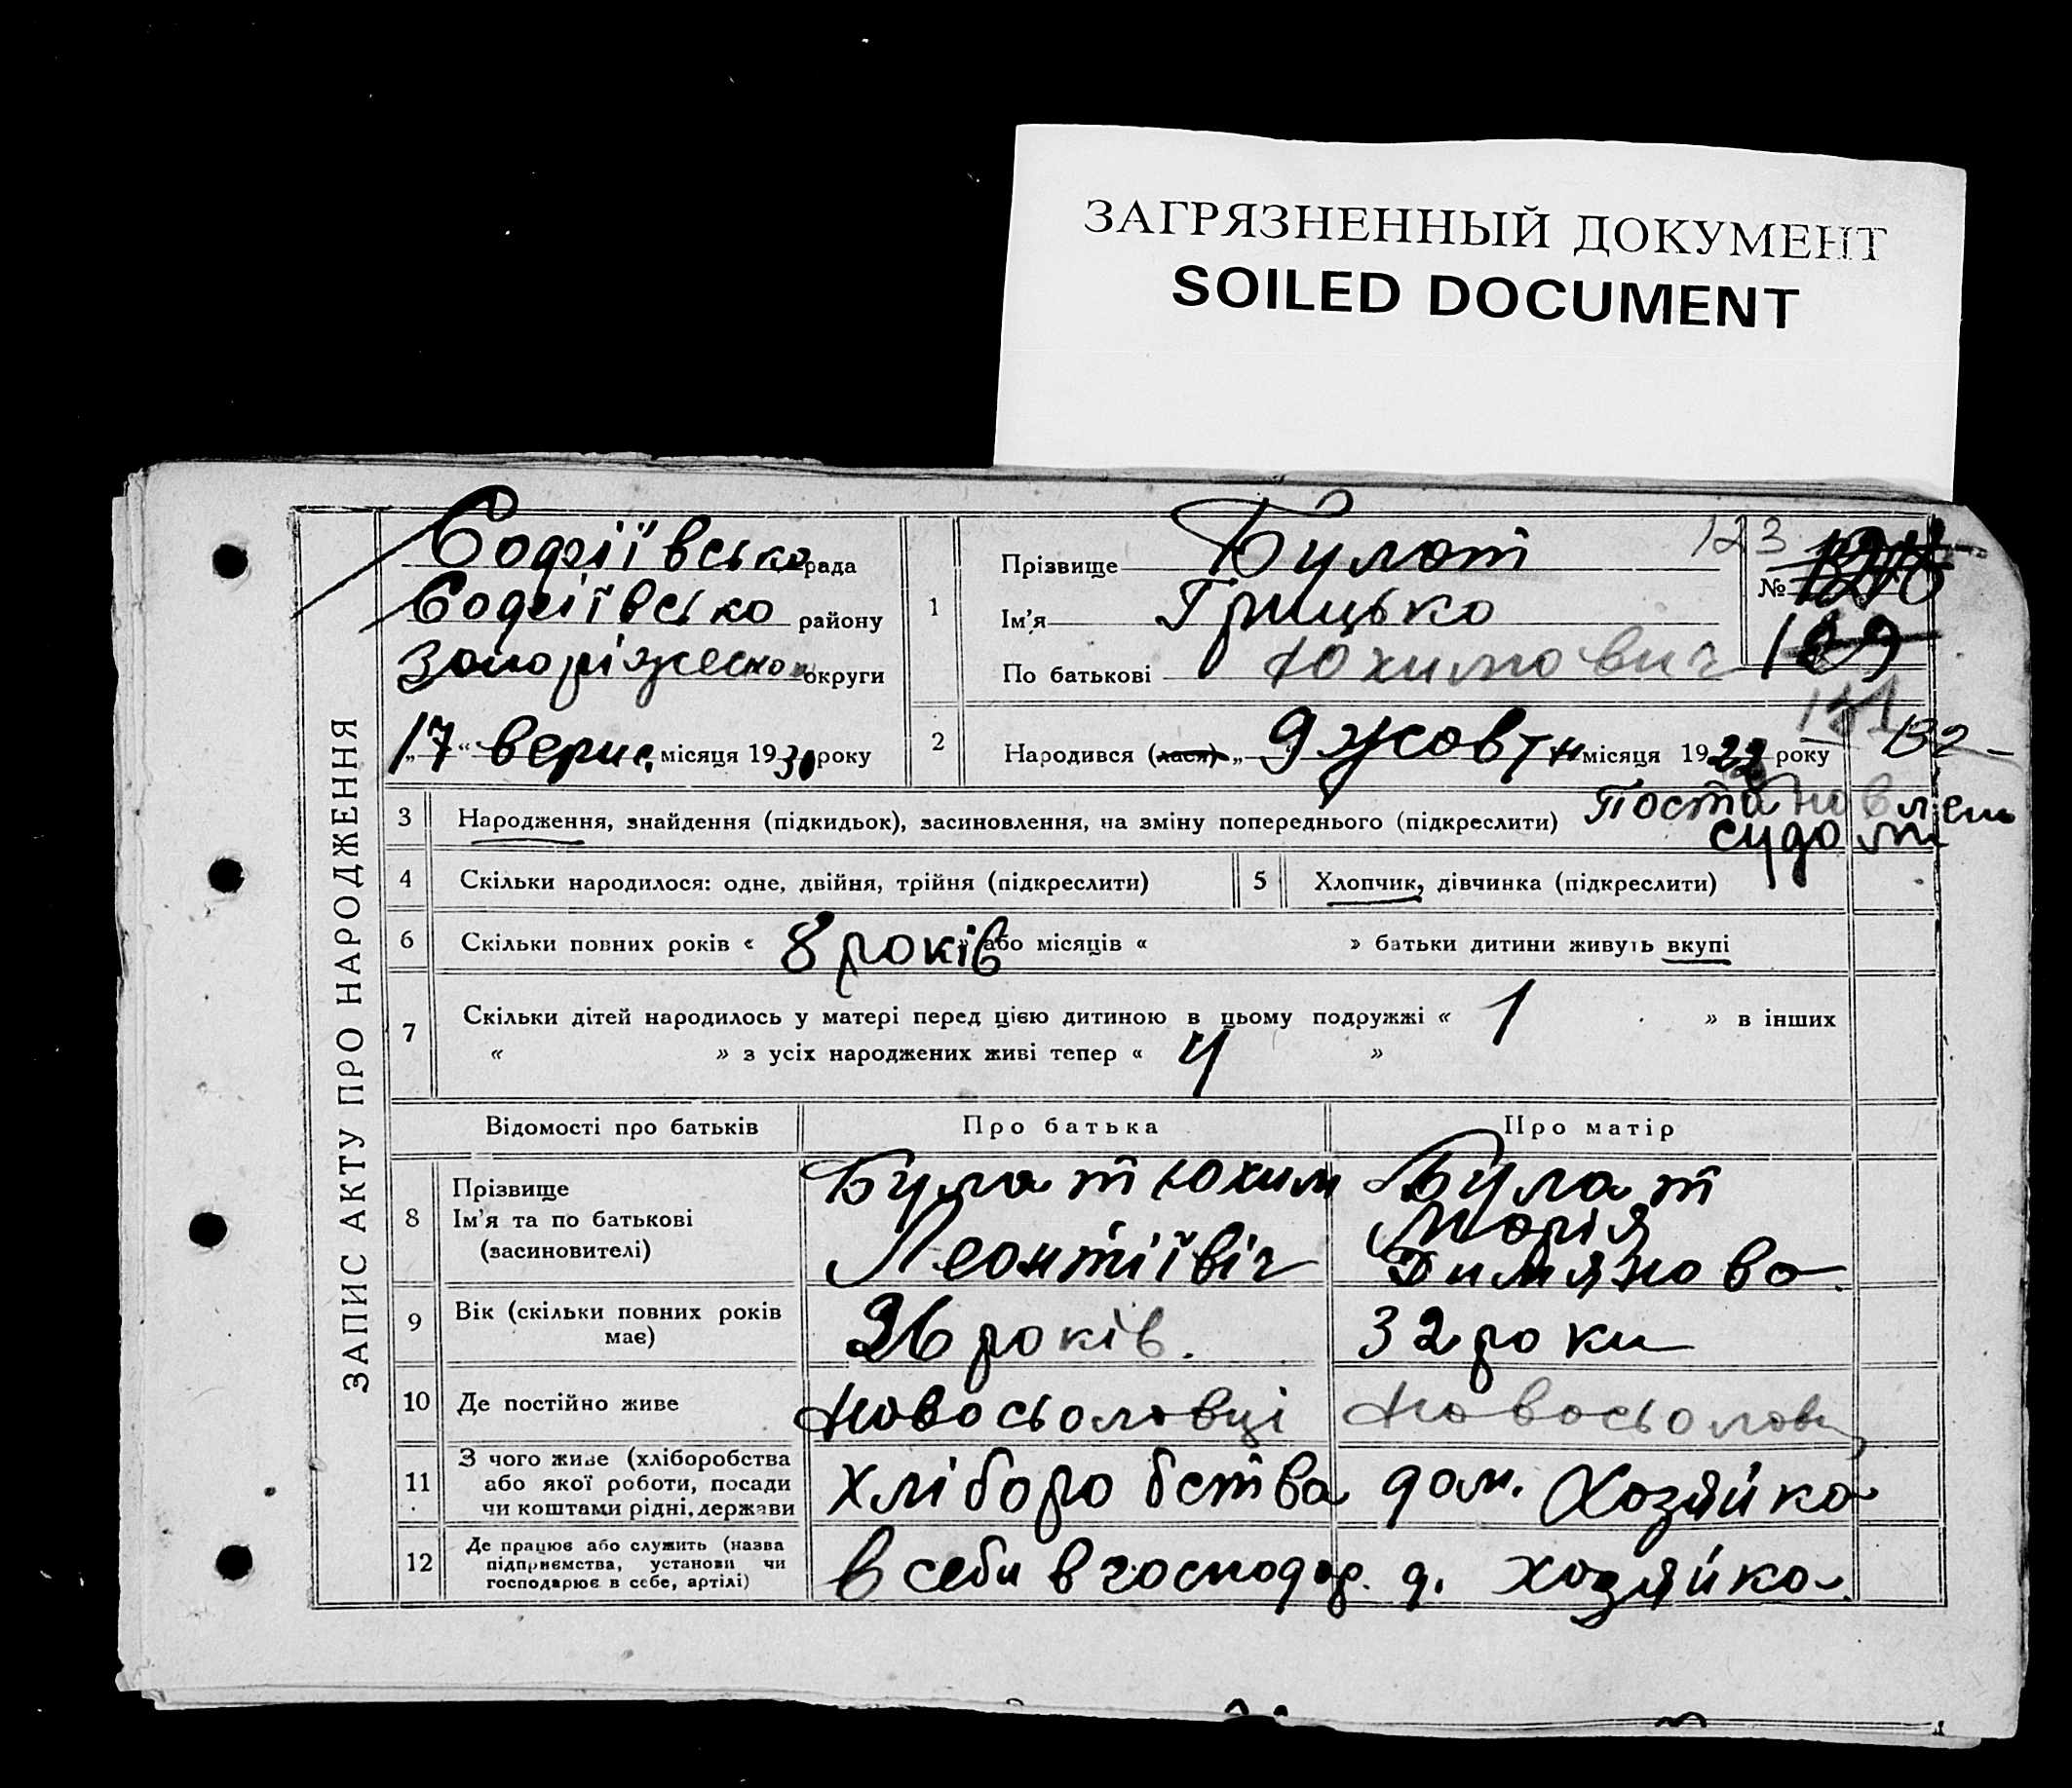 ЗАГРЯЗНЕННЫЙ ДОКУМЕНТ
SOILED DOCUMENT
ЗАПИС АКТУ ПРО НАРОДЖЕННЯ
Софіївська рада
Софіївсько району
Запоріжеської округи
„17“ верис. місяця 1930 року
1
Прізвище Булат
Ім'я Грицько
По батькові Юхимович
123
№
129
131
132
2
Народився (лася) „9 жовтн місяця 1922 року
3 Народження, знайдення (підкидьок), засиновлення, на зміну попереднього (підкреслити) Постановлень
судом
4 Скільки народилося: одне, двійня, трійня (підкреслити) 5 Хлопчик, дівчинка (підкреслити)
6 Скільки повних років « 8 років або місяців « » батьки дитини живуть вкупі
7 Скільки дітей народилось у матері перед цією дитиною в цьому подружжі « 1 » в інших
« » з усіх народжених живі тепер « 4 »
Відомості про батьків Про батька Про матір
8 Прізвище
Ім'я та по батькові
(засиновителі)
Булат Юхим
Леонтіївіч
Булат
Марія
Димянова
9 Вік (скільки повних років
має)
36 років. 32 роки
10 Де постійно живе Новосьоловці Новосьоловц
11 З чого живе (хліборобства
або якої роботи, посади
чи коштами рідні, держави
хліборобства дом. Хозяйка
12 Де працює або служить (назва
підприємства, установи чи
господарює в себе, артілі)
в себи в господар. д. хозяйка.